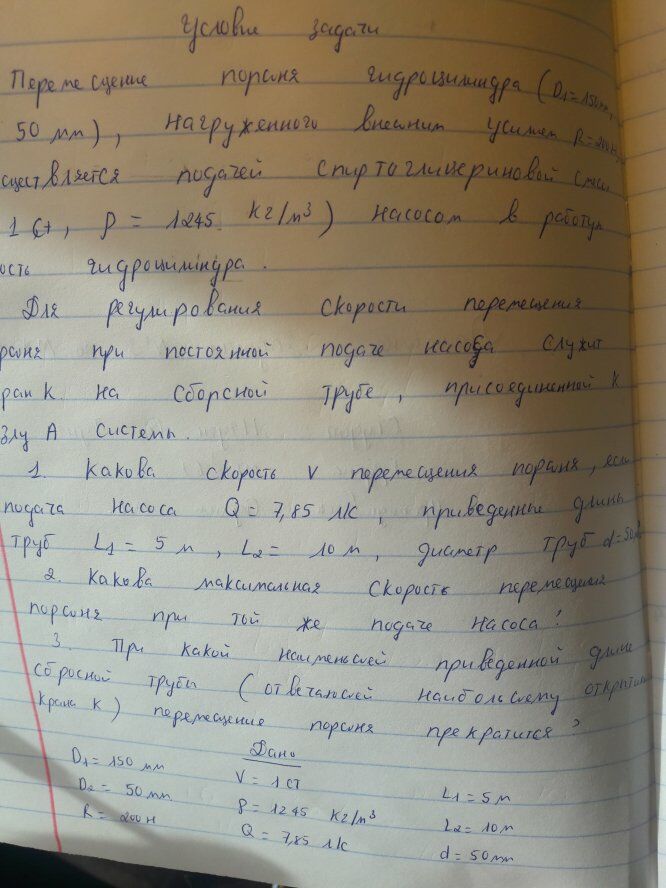 Условие задачи
Перемещение поршня гидроцилиндра (D1=150мм,
50 мм), нагруженного внешним усилием R=200Н,
существляется подачей спиртоглицериновой смеси
1 Ст, ρ = 1245 кг/м³) насосом в рабочую
ость гидроцилиндра.
Для регулирования скорости перемещения
ршня при постоянной подаче насоса служит
ран К на сборсной трубе, присоединенной к
злу А системы.
1. Какова скорость V перемещения поршня, если
подача насоса Q = 7,85 л/с, приведенные длины
труб L1 = 5 м, L2 = 10 м, диаметр труб d=50мм
2. Какова максимальная скорость перемещения
поршня при той же подаче насоса?
3. При какой наименьшей приведенной длине
сбросной трубы (отвечающей наибольшему открытию
крана К) перемещение поршня прекратится?
Дано
D1 = 150 мм V = 1 Ст L1 = 5 м
D2 = 50 мм ρ = 1245 кг/м³ L2 = 10 м
R = 200 Н Q = 7,85 л/с d = 50 мм